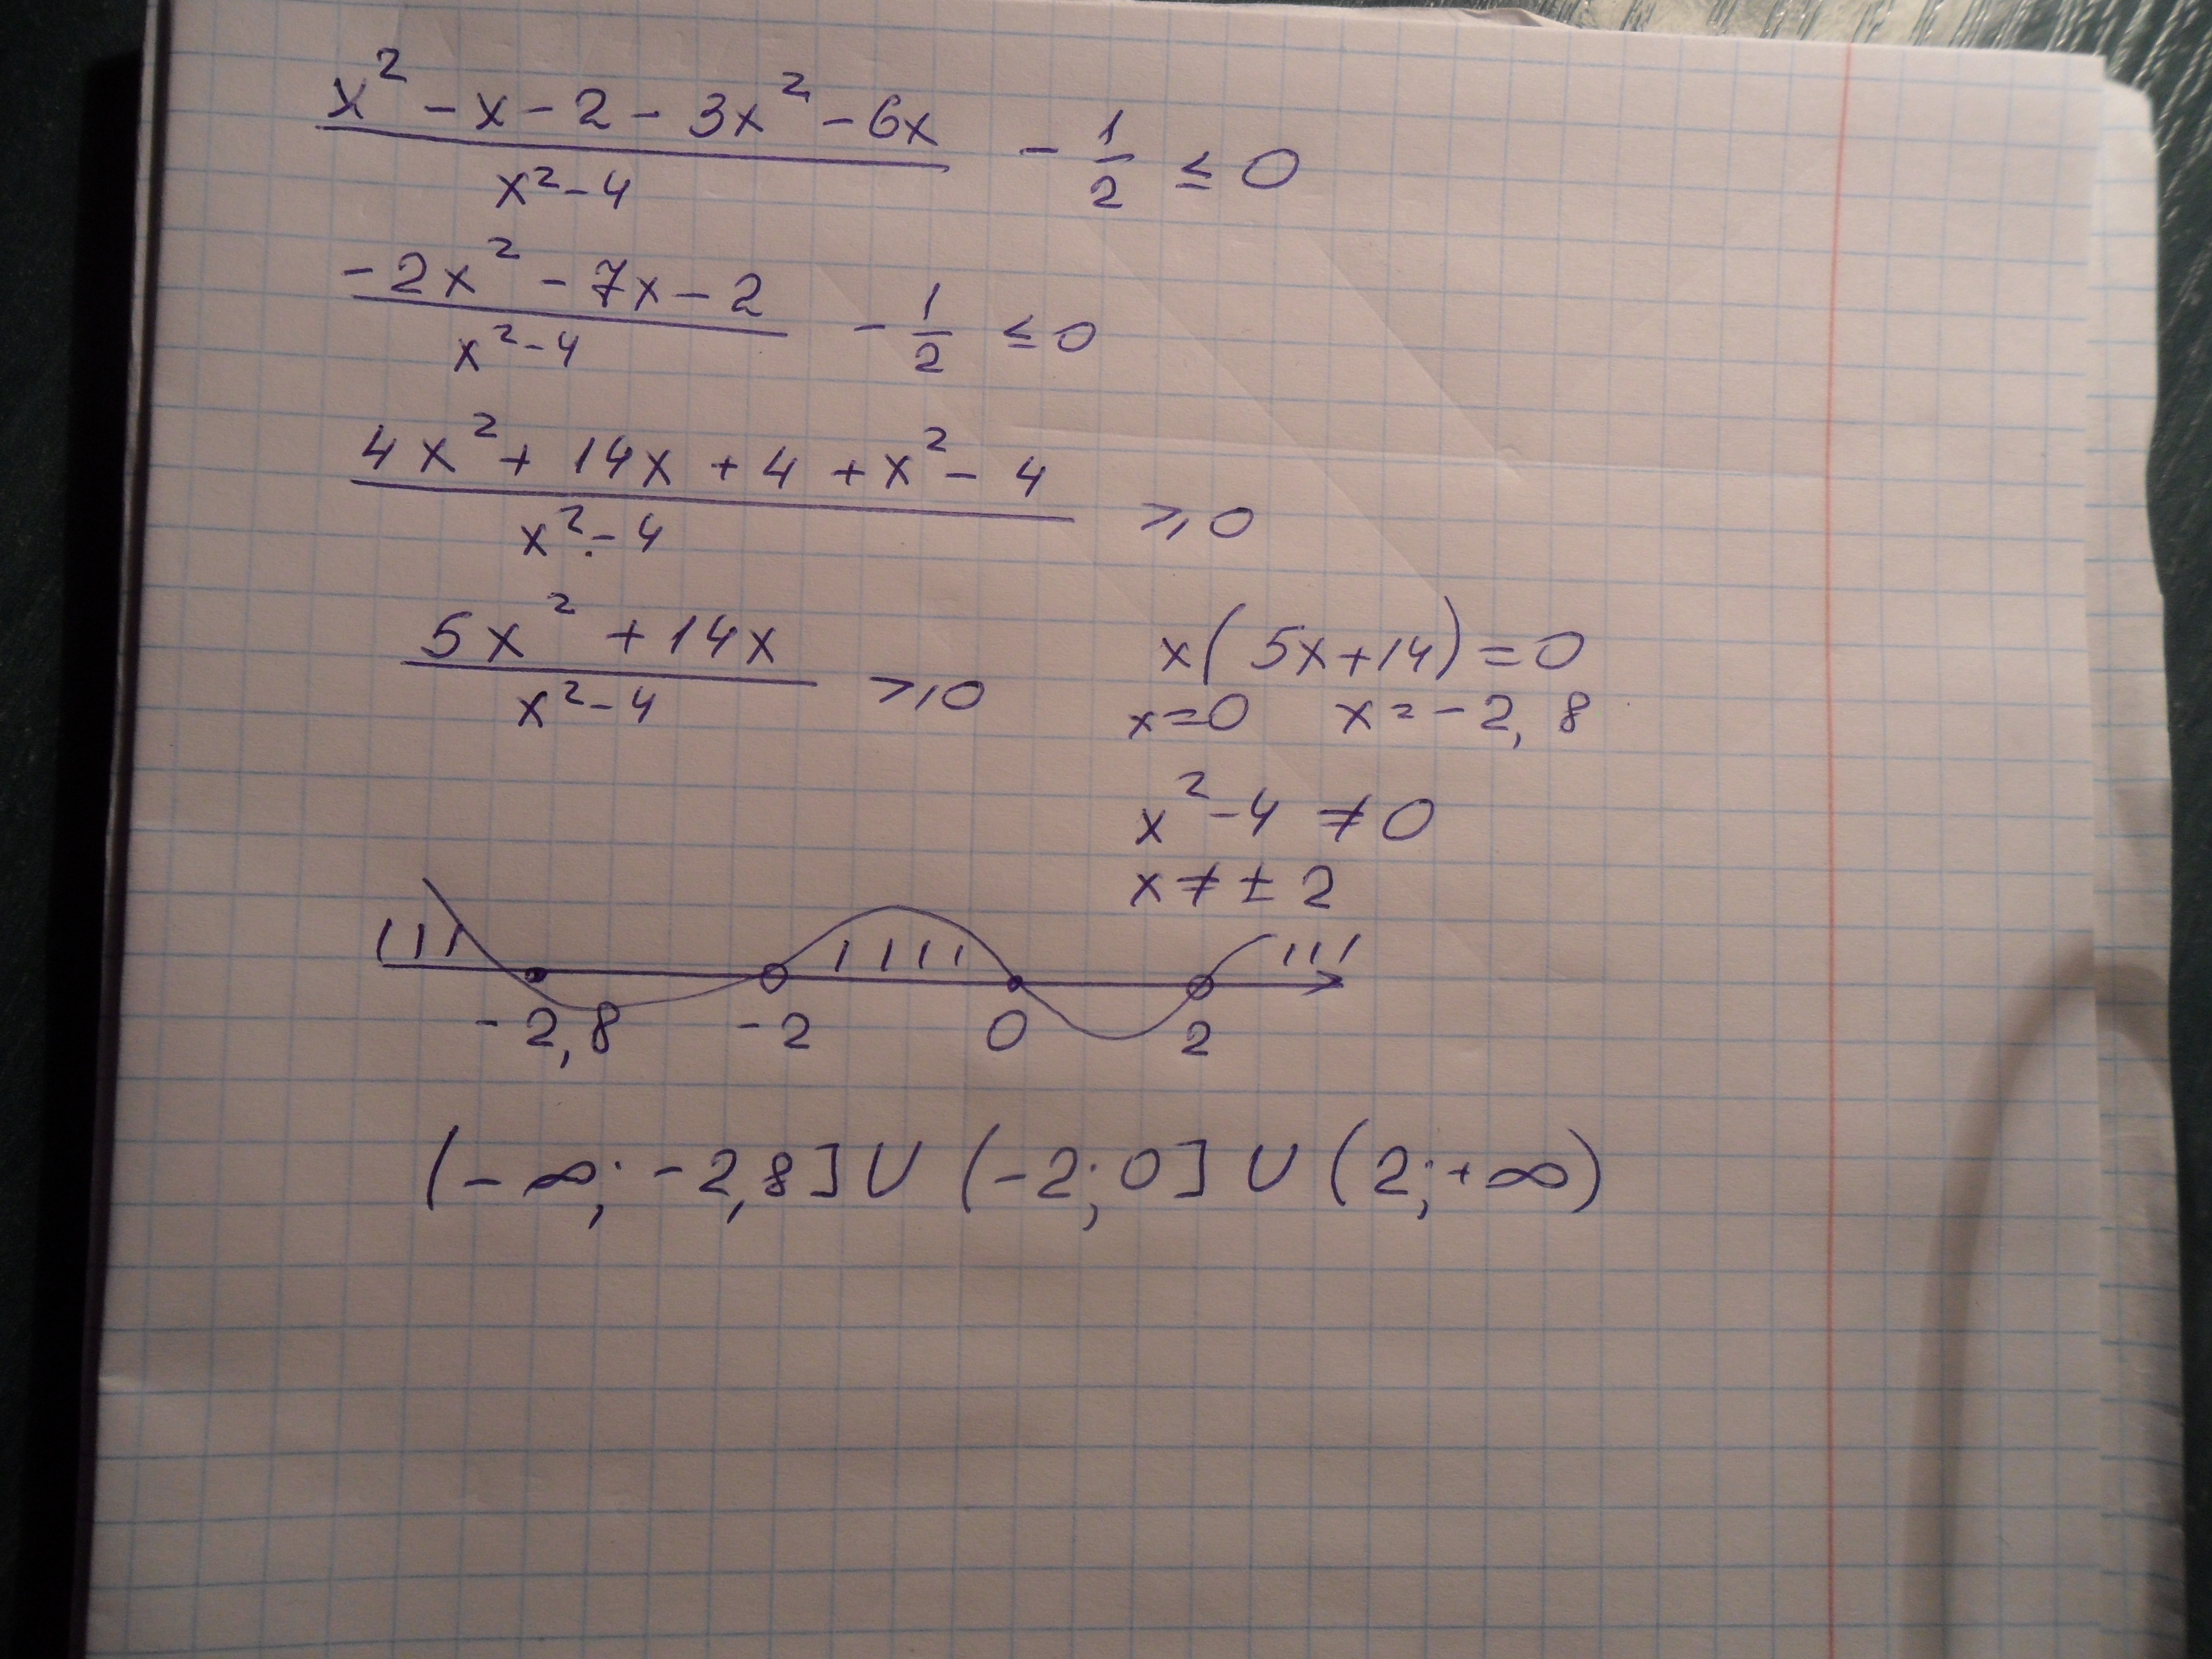 (x² - x - 2 - 3x² - 6x)/(x² - 4) - 1/2 ≤ 0
(-2x² - 7x - 2)/(x² - 4) - 1/2 ≤ 0
(4x² + 14x + 4 + x² - 4)/(x² - 4) ≥ 0
(5x² + 14x)/(x² - 4) ≥ 0
x(5x + 14) = 0
x = 0 x = -2,8
x² - 4 ≠ 0
x ≠ ± 2
-2,8 -2 0 2
(-∞; -2,8] ∪ (-2; 0] ∪ (2; +∞)